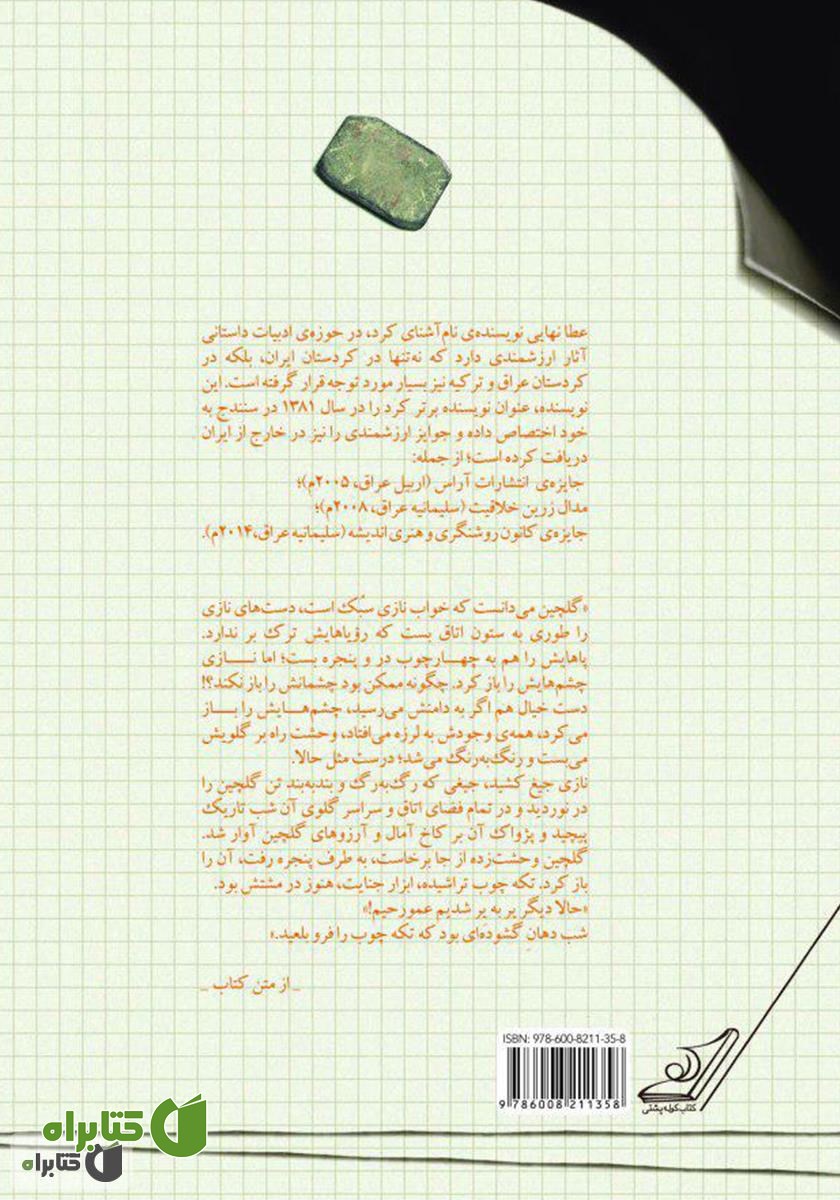 عطا نهایی نویسنده‌ی نام‌آشنای کرد، در حوزه‌ی ادبیات داستانی
آثار ارزشمندی دارد که نه‌تنها در کردستان ایران، بلکه در
کردستان عراق و ترکیه نیز بسیار مورد توجه قرار گرفته است. این
نویسنده، عنوان نویسنده برتر کرد را در سال ۱۳۸۱ در سنندج به
خود اختصاص داده و جوایز ارزشمندی را نیز در خارج از ایران
دریافت کرده است؛ از جمله:
جایزه‌ی انتشارات آراس (اربیل عراق، ۲۰۰۵م)؛
مدال زرین خلاقیت (سلیمانیه عراق، ۲۰۰۸م)؛
جایزه‌ی کانون روشنگری و هنری اندیشه (سلیمانیه عراق،۲۰۱۴م).
«گلچین می‌دانست که خواب نازی سبُک است، دست‌های نازی
را طوری به ستون اتاق بست که رؤیاهایش ترک بر ندارد.
پاهایش را هم به چهارچوب در و پنجره بست؛ اما نازی
چشم‌هایش را باز کرد. چگونه ممکن بود چشمانش را باز نکند؟!
دست خیال هم اگر به دامنش می‌رسید، چشم‌هایش را باز
می‌کرد، همه‌ی وجودش به لرزه می‌افتاد، وحشت راه بر گلویش
می‌بست و رنگ‌به‌رنگ می‌شد؛ درست مثل حالا.
نازی جیغ کشید، جیغی که رگ‌به‌رگ و بندبه‌بند تن گلچین را
در نوردید و در تمام فضای اتاق و سراسر گلوی آن شب تاریک
پیچید و پژواک آن بر کاخ آمال و آرزوهای گلچین آوار شد.
گلچین وحشت‌زده از جا برخاست، به طرف پنجره رفت، آن را
باز کرد. تکه چوب تراشیده، ابزار جنایت، هنوز در مشتش بود.
«حالا دیگر یر به یر شدیم عمورحیم!»
شب دهانِ گشوده‌ای بود که تکه چوب را فرو بلعید.»
_ از متن کتاب _
ISBN: 978-600-8211-35-8
9 786008 211358
کتاب کوله‌پشتی
کتابراه
کتابراه